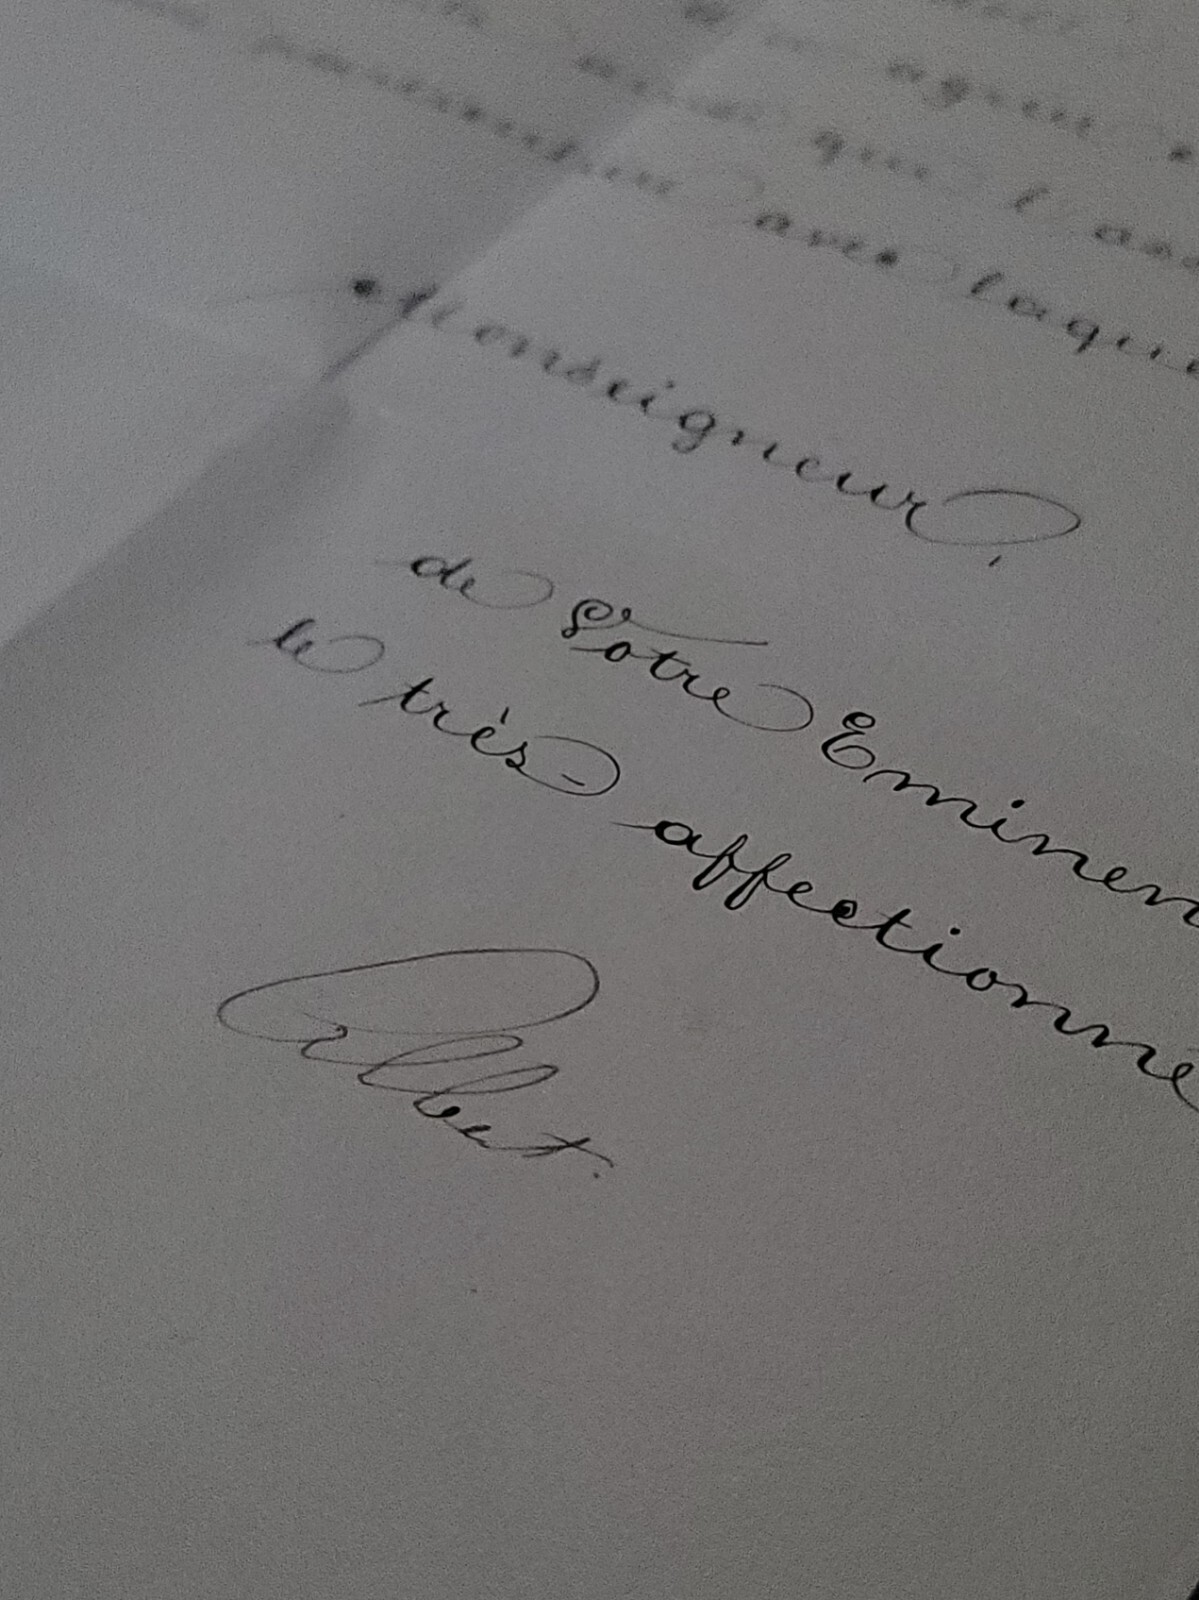 que l'ass
avec laque
Monseigneur,
de Votre Eminen
le très-affectionné
Albert.